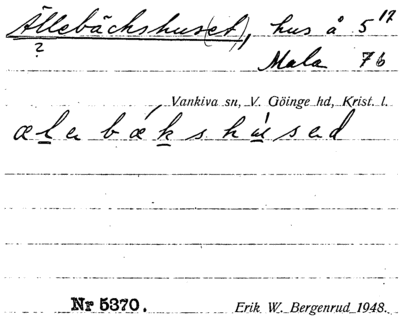 Ällebäckshus(et), hus å 5¹⁷
?
Mala 7b
Vankiva sn, V. Göinge hd, Krist. l.
ælabǽkshúsad
Nr 5370. Erik W. Bergenrud 1948.